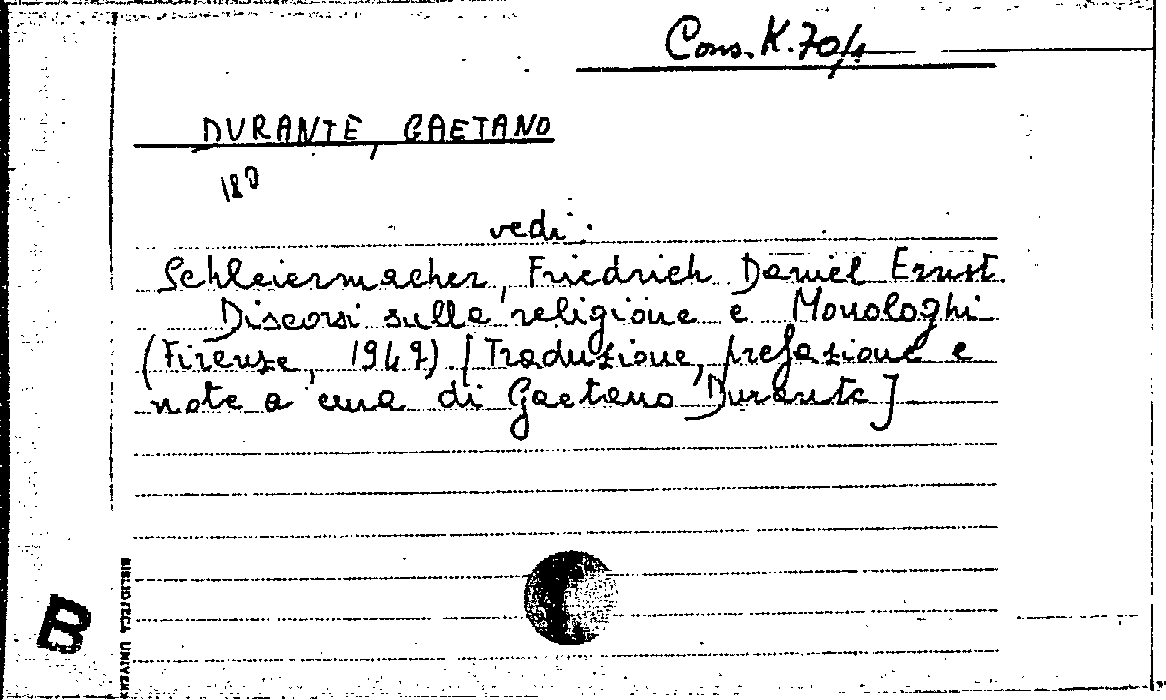 Cons. K. 70/1
DURANTE, GAETANO
180
vedi:
Schleiermacher, Friedrich Daniel Ernst.
Discorsi sulla religione e Monologhi
(Firenze, 1947) [Traduzione, prefazione e
note a cura di Gaetano Durante]
B
BIBLIOTECA UNIVERS